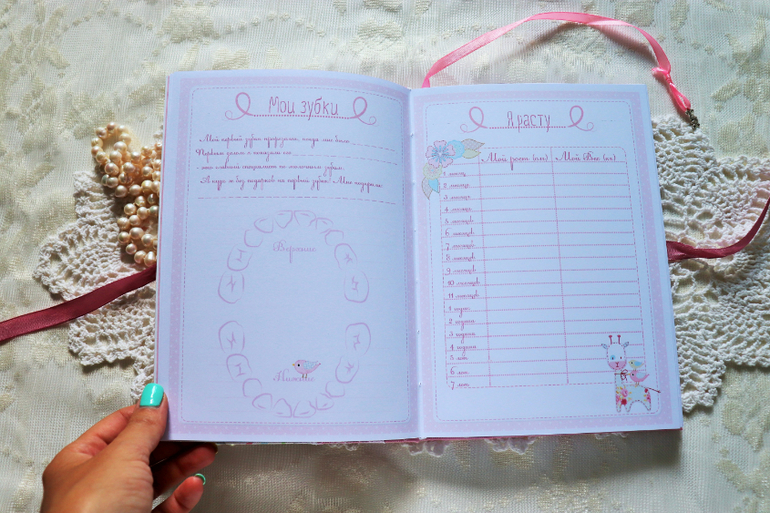 Мои зубки
Мой первый зубик прорезался, когда мне было
Первым делом я показала его
- это главный специалист по молочным зубам.
А куда ж без подарков на первый зубик! Мне подарили
Верхние
Нижние
Я расту
Мой рост (см) Мой Вес (кг)
1 месяц
2 месяца
3 месяца
4 месяца
5 месяцев
6 месяцев
7 месяцев
8 месяцев
9 месяцев
10 месяцев
11 месяцев
1 годик
2 годика
3 годика
4 годика
5 лет
6 лет
7 лет